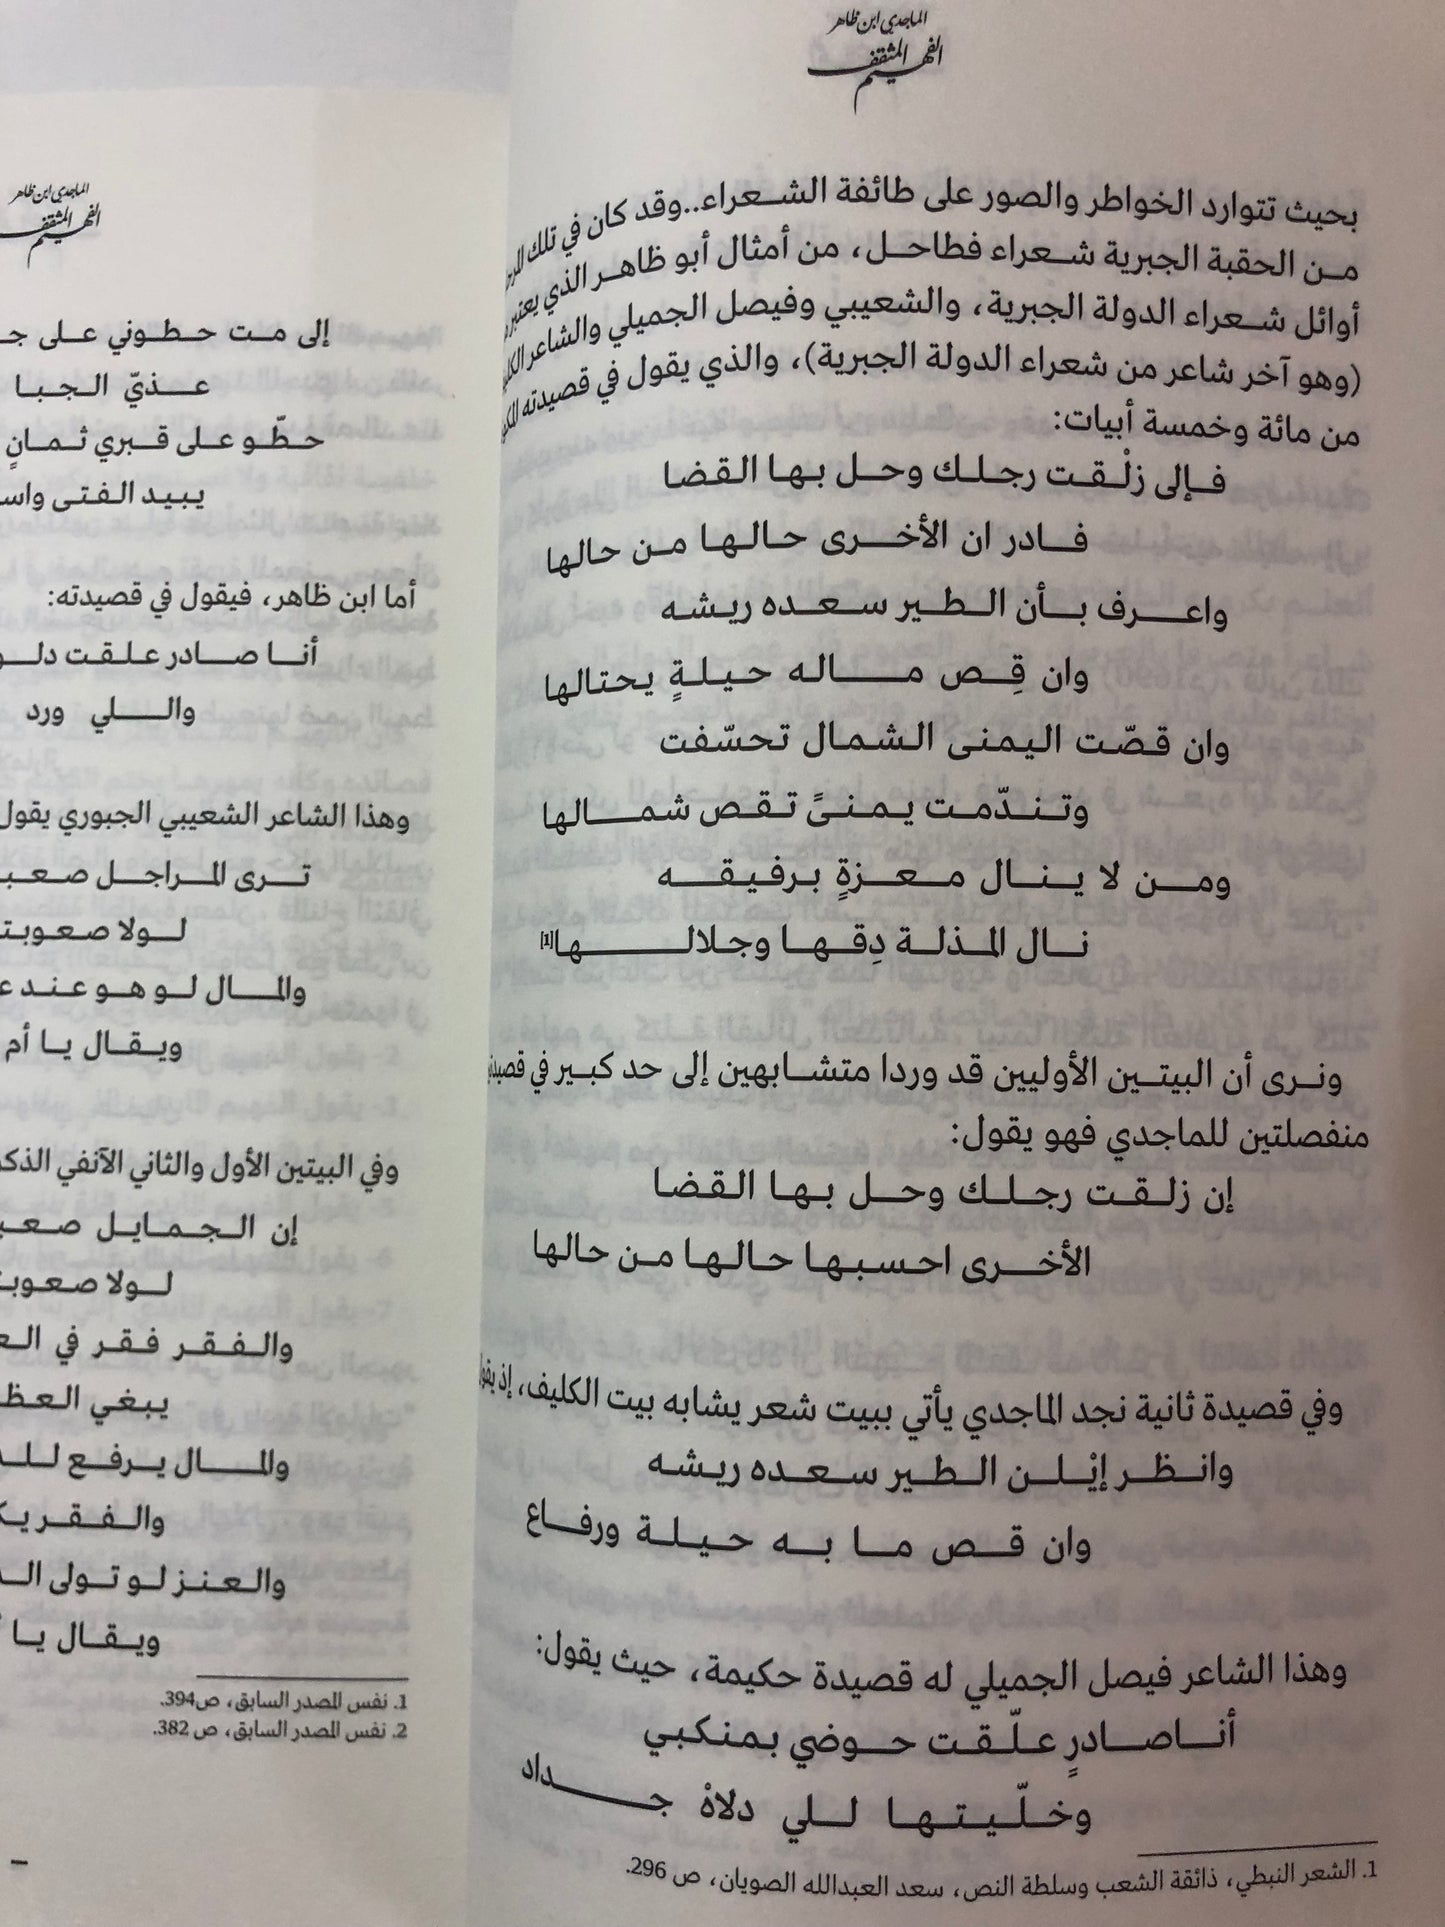 الماجدي ابن ظاهر
الفهيم المثقف
بحيث تتوارد الخواطر والصور على طائفة الشعراء..وقد كان في تلك
من الحقبة الجبرية شعراء فطاحل، من أمثال أبو ظاهر الذي يعتبر
أوائل شعراء الدولة الجبرية، والشعيبي وفيصل الجميلي والشاعر
(وهو آخر شاعر من شعراء الدولة الجبرية)، والذي يقول في قصيدته
من مائة وخمسة أبيات:
فإلى زلْقت رجلك وحل بها القضا
فادر ان الأخرى حالها من حالها
واعرف بأن الطير سعده ريشه
وان قِص ماله حيلةٍ يحتالها
وان قصّت اليمنى الشمال تحسّفت
وتندّمت يمنىً تقص شمالها
ومن لا ينال معزةٍ برفيقه
نال المذلة دِقها وجلالها[1]
ونرى أن البيتين الأوليين قد وردا متشابهين إلى حد كبير في
منفصلتين للماجدي فهو يقول:
إن زلقت رجلك وحل بها القضا
الأخرى احسبها حالها من حالها
وفي قصيدة ثانية نجد الماجدي يأتي ببيت شعر يشابه بيت الكليف، إذ يقول
وانظر إيْلن الطير سعده ريشه
وان قص ما به حيلة ورفاع
وهذا الشاعر فيصل الجميلي له قصيدة حكيمة، حيث يقول:
أنا صادرٍ علّقت حوضي بمنكبي
وخلّيتها للي دلاهْ جداد
1. الشعر النبطي، ذائقة الشعب وسلطة النص، سعد العبدالله الصويان، ص 296.
الماجدي ابن ظاهر
الفهيم المثقف
إلى مت حطوني على
عذيّ الجبا
حطّو على قبري ثمانٍ
يبيد الفتى
أما ابن ظاهر، فيقول في قصيدته:
أنا صادر علقت
واللي ورد
وهذا الشاعر الشعيبي الجبوري يقول
ترى المراجل
لولا
والمال لو هو عند
ويقال يا أم
وفي البيتين الأول والثاني الآنفي
إن الجمايل
لولا
والفقر فقر في
يبغي
والمال يرفع
والفقر
والعنز لو تولى
ويقال يا
1. نفس المصدر السابق، ص394.
2. نفس المصدر السابق، ص 382.